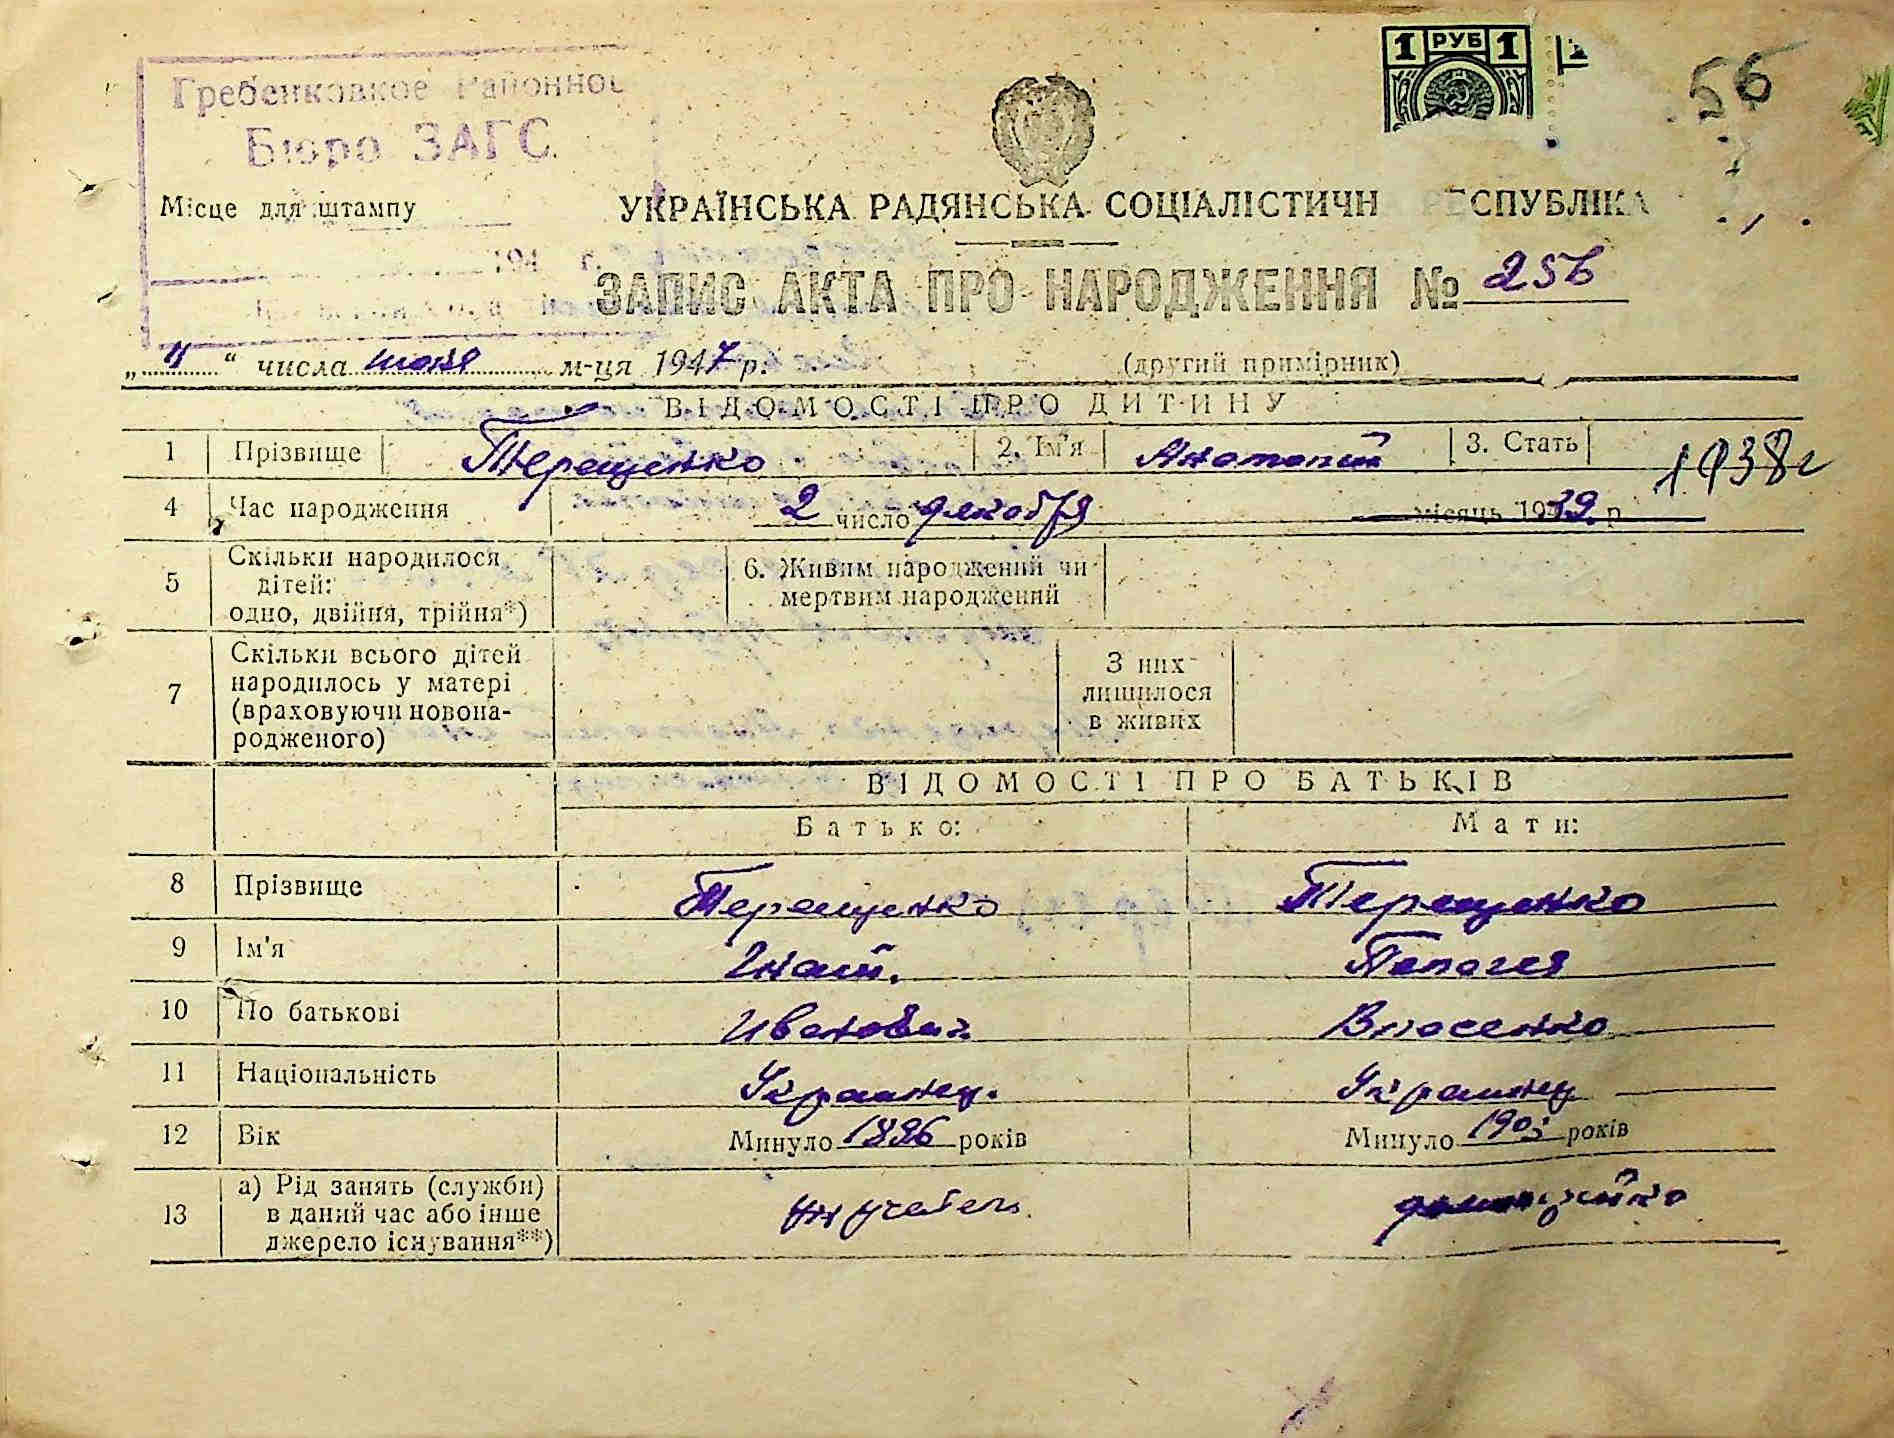 Гребенковкое Районное
Бюро ЗАГС.
Місце для штампу
194 г.
1 РУБ 1
56
УКРАЇНСЬКА РАДЯНСЬКА СОЦІАЛІСТИЧН РЕСПУБЛІКА
ЗАПИС АКТА ПРО НАРОДЖЕННЯ №
„ “ числа июня м-ця 1947 р.
(другий примірник)
ВІДОМОСТІ ПРО ДИТИНУ
1 Прізвище Терещенко 2. Ім'я Анатолий 3. Стать
1938 г
4 Час народження 2 число декабря місяць 1939 р.
5 Скільки народилося дітей: одно, двійня, трійня*) 6. Живим народжений чи мертвим народжений
7 Скільки всього дітей народилось у матері (враховуючи новона-родженого) З них лишилося в живих
ВІДОМОСТІ ПРО БАТЬКІВ
Батько: Мати:
8 Прізвище Терещенко Терещенко
9 Ім'я Игнат. Пелагея
10 По батькові Иванович Власенко
11 Національність Украинец. Украинец
12 Вік Минуло 1896 років Минуло років
13 а) Рід занять (служби) в даний час або інше джерело існування**) домохозяйка